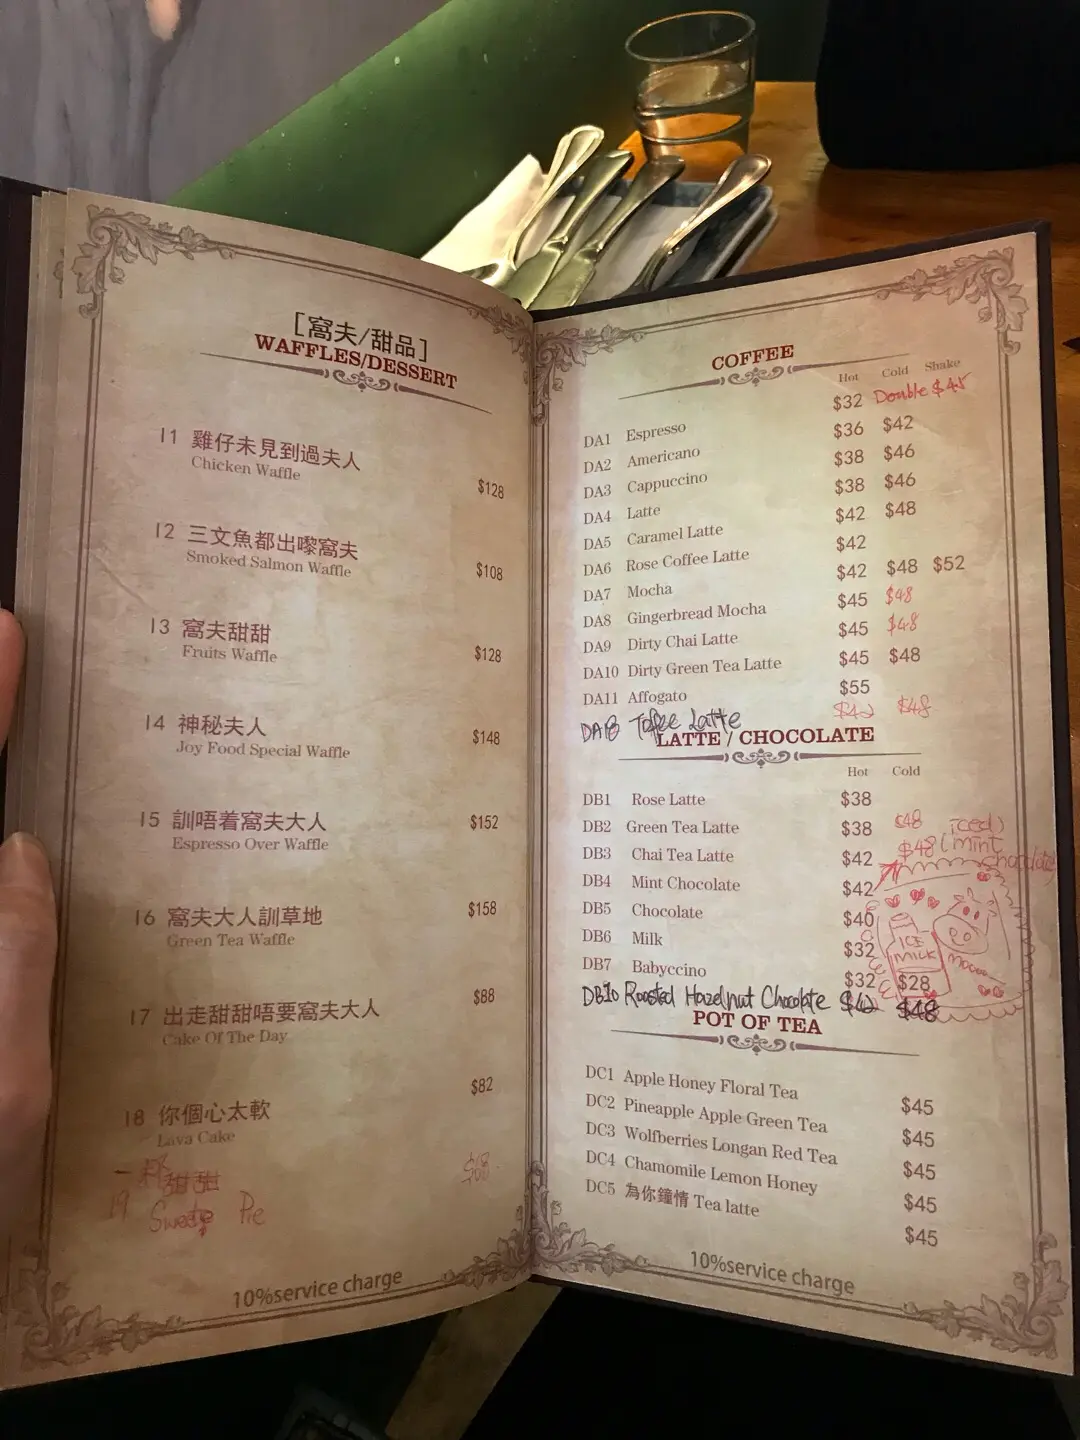 [窩夫/甜品]
WAFFLES/DESSERT
I1 雞仔未見到過夫人
Chicken Waffle
$128
I2 三文魚都出嚟窩夫
Smoked Salmon Waffle
$108
I3 窩夫甜甜
Fruits Waffle
$128
I4 神秘夫人
Joy Food Special Waffle
$148
I5 訓唔着窩夫大人
Espresso Over Waffle
$152
I6 窩夫大人訓草地
Green Tea Waffle
$158
I7 出走甜甜唔要窩夫大人
Cake Of The Day
$88
I8 你個心太軟
Lava Cake
$82
甜甜
19 Sweets Pie
$68
10%service charge
COFFEE
Hot Cold Shake
DA1 Espresso $32 Double $45
DA2 Americano $36 $42
DA3 Cappuccino $38 $46
DA4 Latte $38 $46
DA5 Caramel Latte $42 $48
DA6 Rose Coffee Latte $42
DA7 Mocha $42 $48 $52
DA8 Gingerbread Mocha $45 $48
DA9 Dirty Chai Latte $45 $48
DA10 Dirty Green Tea Latte $45 $48
DA11 Affogato $55
Toffee Latte $42 $48
LATTE / CHOCOLATE
Hot Cold
DB1 Rose Latte $38
DB2 Green Tea Latte $38 $48
DB3 Chai Tea Latte $42 $48 (iced) (mint chocolate)
DB4 Mint Chocolate $42
DB5 Chocolate $40
DB6 Milk $32
DB7 Babyccino $32 $28
ICE
MILK
DB10 Roasted Hazelnut Chocolate $42 $48
POT OF TEA
DC1 Apple Honey Floral Tea $45
DC2 Pineapple Apple Green Tea $45
DC3 Wolfberries Longan Red Tea $45
DC4 Chamomile Lemon Honey $45
DC5 為你鐘情 Tea latte $45
10%service charge